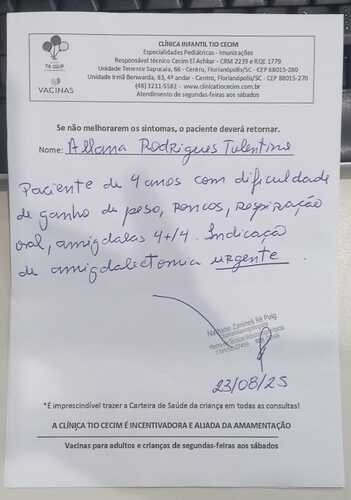 TIO CECIM
VACINAS
CLÍNICA INFANTIL TIO CECIM
Especialidades Pediátricas - Imunizações
Responsável técnico Cecim El Achkar - CRM 2239 e RQE 1779
Unidade Tenente Sapucaia, 66 - Centro, Florianópolis/SC - CEP 88015-280
Unidade Irmã Benwarda, 83, 4º andar - Centro, Florianópolis/SC - CEP 88015-270
(48) 3231-5582 - www.clinicatiocecim.com.br
Atendimento de segundas-feiras aos sábados
Se não melhorarem os sintomas, o paciente deverá retornar.
Nome: Allana Rodrigues Tulentino
Paciente de 4 anos com dificuldade
de ganho de peso, roncos, respiração
oral, amigdalas 4+/4. Indicação
de amigdalectomia urgente.
23/08/25
*É imprescindível trazer a Carteira de Saúde da criança em todas as consultas!
A CLÍNICA TIO CECIM É INCENTIVADORA E ALIADA DA AMAMENTAÇÃO
Vacinas para adultos e crianças de segundas-feiras aos sábados